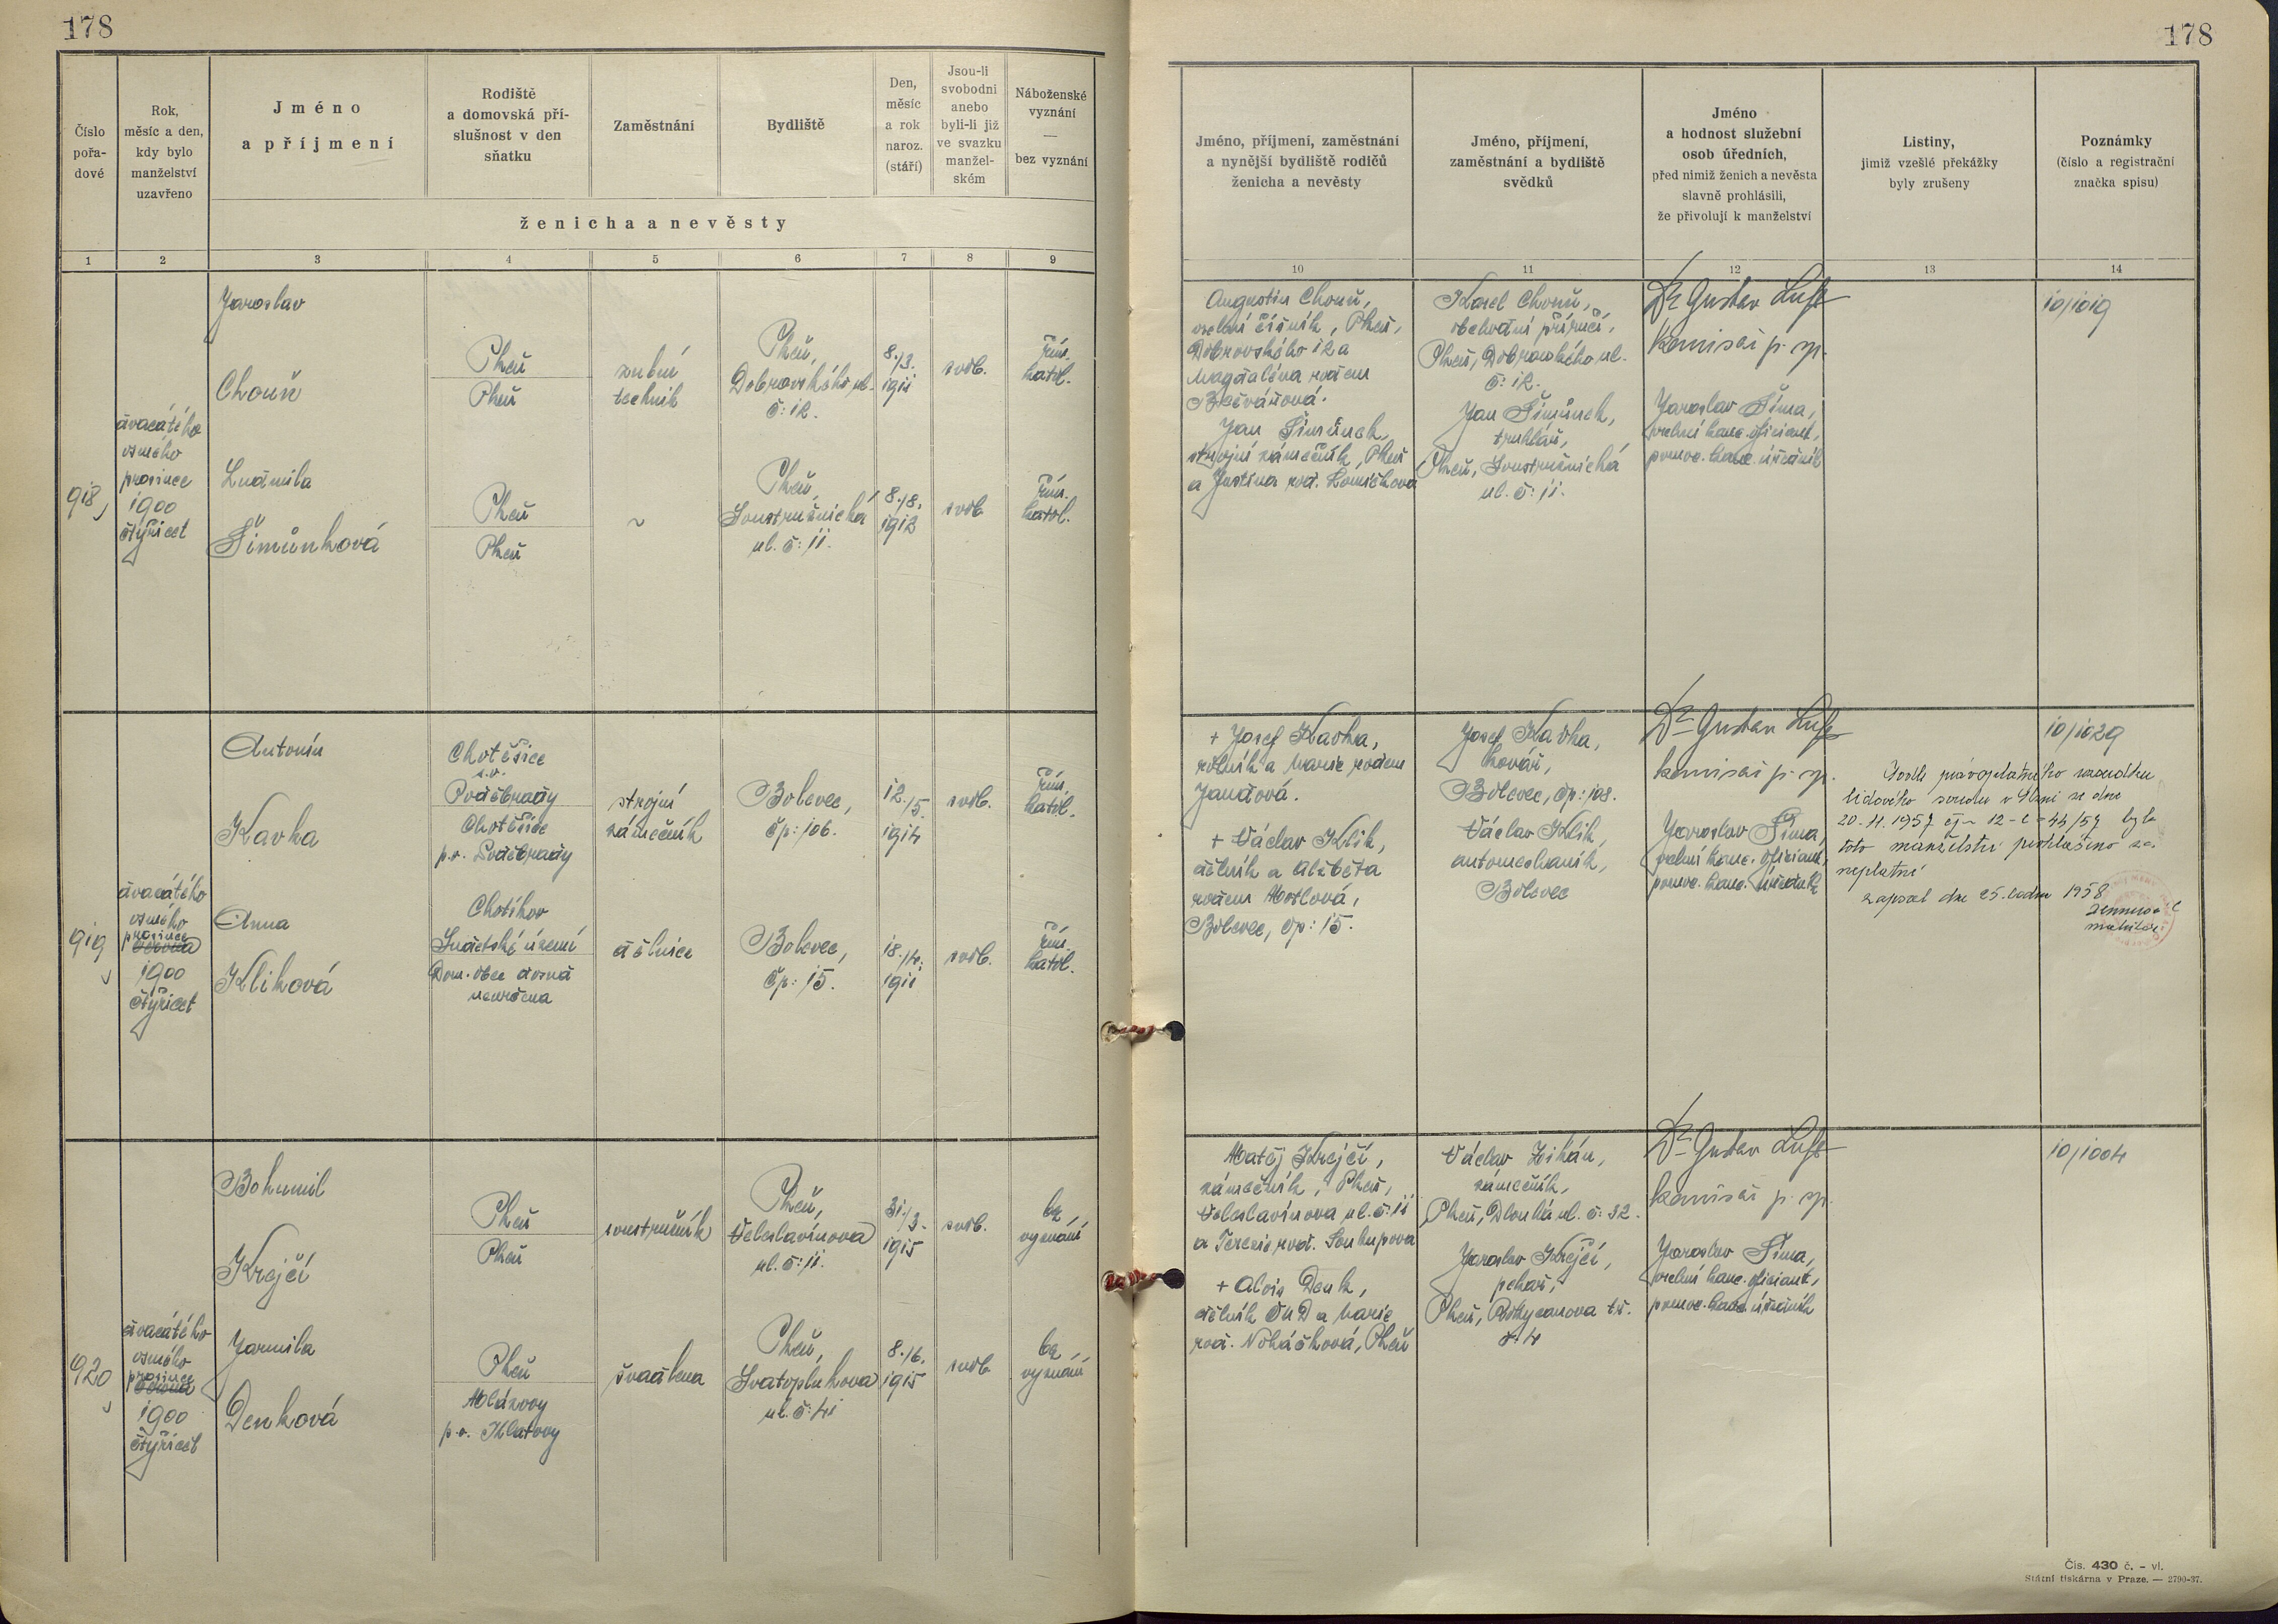 178
178
Číslo
pořa-
dové
Rok,
měsíc a den,
kdy bylo
manželství
uzavřeno
Jméno
a příjmení
Rodiště
a domovská pří-
slušnost v den
sňatku
Zaměstnání
Bydliště
Den,
měsíc
a rok
naroz.
(stáří)
Jsou-li
svobodni
anebo
byli-li již
ve svazku
manžel-
ském
Náboženské
vyznání
—
bez vyznání
ženicha a nevěsty
1 2 3 4 5 6 7 8 9
Jméno, příjmení, zaměstnání
a nynější bydliště rodičů
ženicha a nevěsty
Jméno, příjmení,
zaměstnání a bydliště
svědků
Jméno
a hodnost služební
osob úředních,
před nimiž ženich a nevěsta
slavně prohlásili,
že přivolují k manželství
Listiny,
jimiž vzešlé překážky
byly zrušeny
Poznámky
(číslo a registrační
značka spisu)
10 11 12 13 14
918
dvacátého
osmého
prosince
1900
čtyřicet
Jaroslav
Chouň
Plzeň
Plzeň
zubní
technik
Plzeň,
Dobrovského ul.
č: 12.
8./3.
1911
svob.
řím.
katol.
Ludmila
Šimůnková
Plzeň
Plzeň
~
Plzeň,
Soustružnická
ul. č: 11.
8./8.
1912
svob
řím.
katol.
Augustin Chouň,
vrchní číšník, Plzeň,
Dobrovského 12 a
Magdaléna rozem
Jan Šimůnek,
strojní zámečník, Plzeň
a Justina roz. Lomičkova
Karel Chouň,
obchodní příručí,
Plzeň, Dobrovského ul.
č: 12.
Jan Šimůnek,
truhlář,
Plzeň, Soustružnická
ul. č: 11.
Dr Gustav
komisař p. sp.
Jaroslav Šíma,
vrchní kanc. oficiant,
pomoc. kanc. úředník
10/1019
919
dvacátého
osmého
prosince
1900
čtyřicet
Antonín
Kavka
Chotěšice
s.o.
Poděbrady
Chotěšice
p.o. Poděbrady
strojní
zámečník
Bolevec,
čp: 106.
12./5.
1914
svob.
řím.
katol.
Anna
Kliková
Chotíkov
Sudetské území
Dom. obec dosud
neurčena
dělnice
Bolevec,
čp: 15.
18./4.
1911
svob.
řím.
katol.
+ Josef Kavka,
rolník a Marie rozem
Jandová.
+ Václav Klik,
dělník a Alžběta
rozem Mostlová,
Bolevec, čp: 15.
Josef Kavka,
kovář,
Bolevec, čp: 108.
Václav Klik,
automechanik,
Bolevec
Dr Gustav
komisař p. sp.
Jaroslav Šíma,
vrchní kanc. oficiant,
pomoc. kanc. úředník
10/1029
Podle pravoplatného rozsudku
lidového soudu v Plzni ze dne
20.11.1957 čj 12-C-44/57 bylo
toto manželství prohlášeno za
neplatné
zapsal dne 25. ledna 1958
matrikář
920
dvacátého
osmého
prosince
1900
čtyřicet
Bohumil
Krejčí
Plzeň
Plzeň
soustružník
Plzeň,
Veleslavínova
ul. č: 11.
31./3.
1915
svob.
bez
vyznání
Jarmila
Denková
Plzeň
Mlázovy
p.o. Klatovy
švadlena
Plzeň,
Svatoplukova
ul. č: 41
8./6.
1915
svob
bez
vyznání
Matěj Krejčí,
zámečník, Plzeň,
Veleslavínova ul. č: 11
a Terezie roz. Soukupova
+ Alois Denk,
dělník ČSD a Marie
roz. Nováčková, Plzeň
Václav Zikán,
zámečník,
Plzeň, Dlouhá ul. č: 32.
Jaroslav Krejčí,
pekař,
Plzeň, Rokycanova tř.
Dr Gustav
komisař p. sp.
Jaroslav Šíma,
vrchní kanc. oficiant,
pomoc. kanc. úředník
10/1004
Čís. 430 č. - vl.
Státní tiskárna v Praze. — 2790-37.